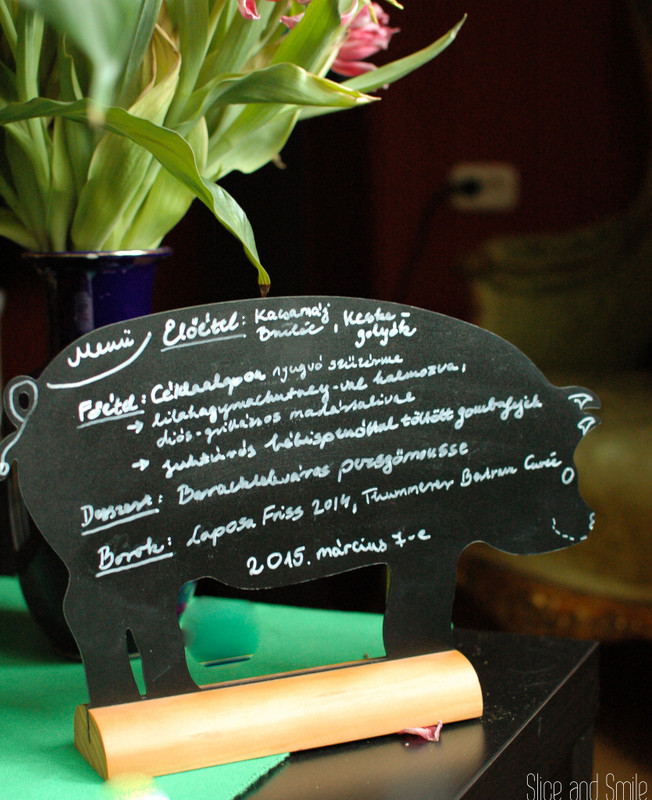 Menü
Előétel: Kacsamáj Brulée, Kecske-golyók
Főétel: Céklaalapon nyugvó szűzérme
→ lilahagymachutney-val halmozva,
diós-grillázsos madársalival
→ juhtúrós bébispenóttal töltött gombafejek
Desszert: Baracklekváros pezsgőmousse
Borok: Laposa Friss 2014, Thummerer Battonage Cuvée
2015. március 7-e
Slice and Smile